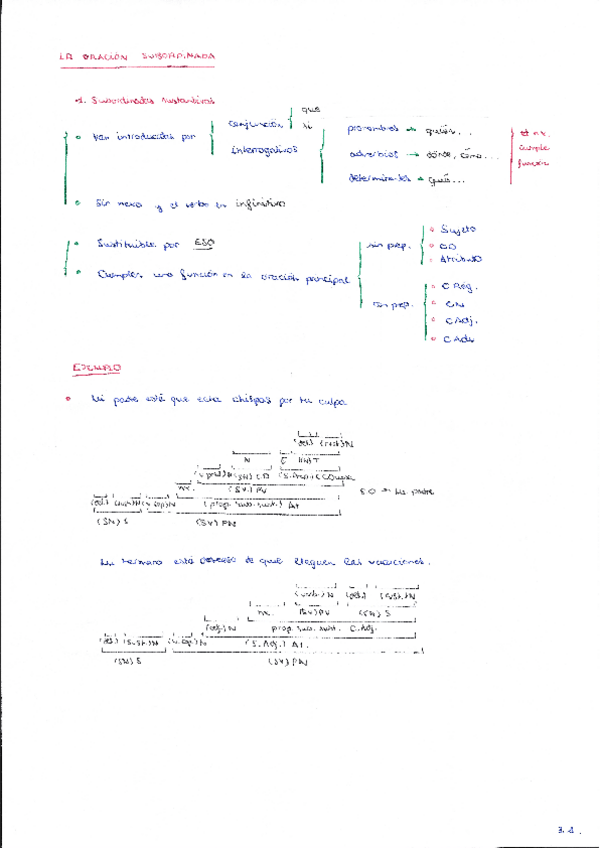 LA ORACIÓN SUBORDINADA
1. Subordinadas sustantivas
• Van introducidas por
conjunción
que
si
interrogativos
pronombres → quién...
adverbios → dónde, cómo...
determinantes → qué...
el nx.
cumple
función
• Sin nexo y el verbo en infinitivo
• Sustituible por ESO
• Cumplen una función en la oración principal
sin prep.
• Sujeto
• CD
• Atributo
prep.
• C Reg.
• CN
• C Adj.
• C Adv
EJEMPLO
• Mi padre está que echa chispas por tu culpa
(det.) (sust.) N
N E (SN) T
(SN) CD
nx. (SV) PV
(prop. sub. sust.) At
(SN) S (SV) PN
Mi hermano está deseoso de que lleguen las vacaciones.
(verb.) N (det.) (sust.) N
nx. (SV) PV (SN) S
(adj.) N prop. sub. sust. C. Adj.
(det.) (sust.) N (v. cop.) N (S. Adj.) At.
(SN) S (SV) PN
3.1.